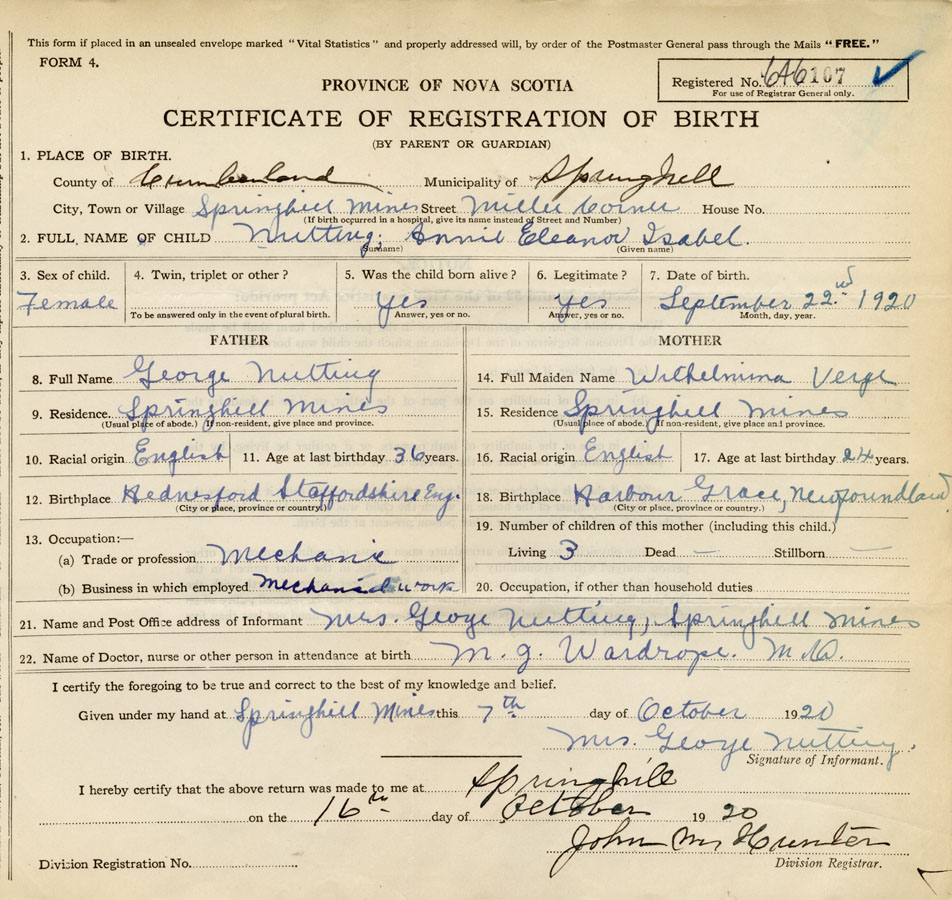 This form if placed in an unsealed envelope marked "Vital Statistics" and properly addressed will, by order of the Postmaster General pass through the Mails "FREE."
FORM 4.
Registered No. 646107
For use of Registrar General only.
PROVINCE OF NOVA SCOTIA
CERTIFICATE OF REGISTRATION OF BIRTH
(BY PARENT OR GUARDIAN)
1. PLACE OF BIRTH.
County of Cumberland Municipality of Springhill
City, Town or Village Springhill Mines Street Miller Corner House No.
(If birth occurred in a hospital, give its name instead of Street and Number)
2. FULL NAME OF CHILD Nutting, Annie Eleanor Isabel.
(Surname) (Given name)
3. Sex of child. 4. Twin, triplet or other? 5. Was the child born alive? 6. Legitimate? 7. Date of birth.
Female Yes Yes September 22nd 1920
To be answered only in the event of plural birth. Answer, yes or no. Answer, yes or no. Month, day, year.
FATHER MOTHER
8. Full Name George Nutting 14. Full Maiden Name Wilhelmina Verge
9. Residence. Springhill Mines 15. Residence Springhill Mines
(Usual place of abode.) If non-resident, give place and province. (Usual place of abode.) If non-resident, give place and province.
10. Racial origin English 11. Age at last birthday 36 years. 16. Racial origin English 17. Age at last birthday 24 years.
12. Birthplace Hednesford Staffordshire Eng. 18. Birthplace Harbour Grace, Newfoundland
(City or place, province or country.) (City or place, province or country.)
13. Occupation:— 19. Number of children of this mother (including this child.)
(a) Trade or profession Mechanic Living 3 Dead — Stillborn —
(b) Business in which employed Mechanical work 20. Occupation, if other than household duties
21. Name and Post Office address of Informant Mrs. George Nutting, Springhill Mines
22. Name of Doctor, nurse or other person in attendance at birth M. J. Wardrope. M.D.
I certify the foregoing to be true and correct to the best of my knowledge and belief.
Given under my hand at Springhill Mines this 7th day of October 1920
Mrs. George Nutting.
Signature of Informant.
I hereby certify that the above return was made to me at Springhill
on the 16th day of October 1920
John Hunter
Division Registration No. Division Registrar.